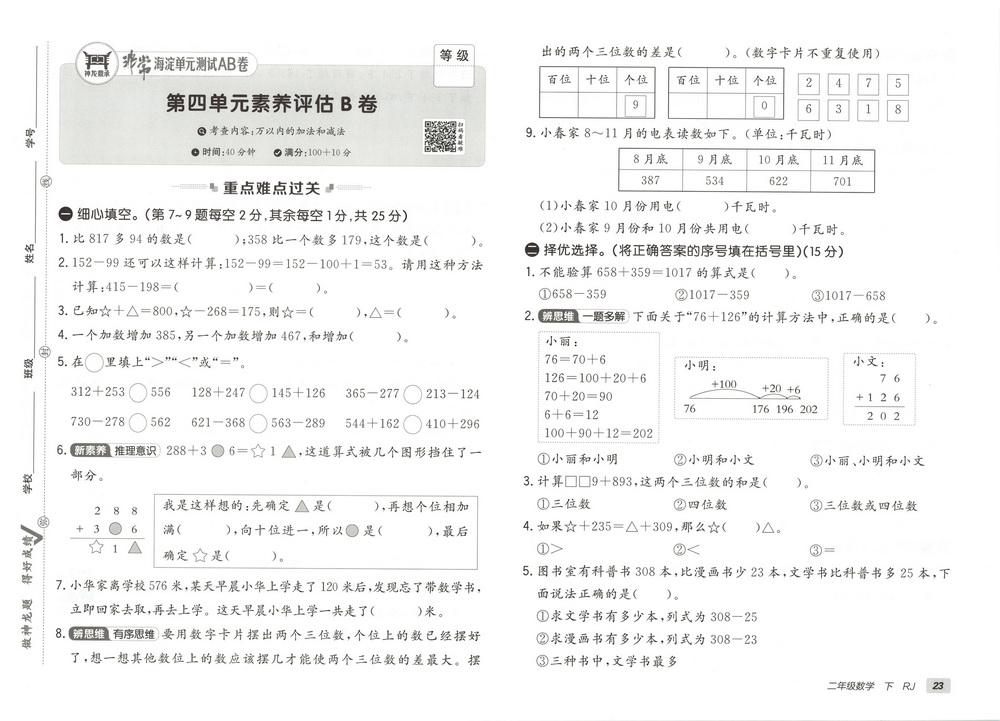 神龙教育
非常海淀单元测试AB卷
等级
第四单元素养评估 B 卷
考查内容:万以内的加法和减法
时间:40分钟 满分:100+10分
扫码看教辅
学号
姓名
班级
学校
线
封
做神龙题 得好成绩
重点难点过关
一 细心填空。(第7~9题每空2分,其余每空1分,共25分)
1. 比817多94的数是( );358比一个数多179,这个数是( )。
2. 152-99还可以这样计算:152-99=152-100+1=53。请用这种方法
计算:415-198=( )=( )。
3. 已知☆+△=800,☆-268=175,则☆=( ),△=( )。
4. 一个加数增加385,另一个加数增加467,和增加( )。
5. 在○里填上“>”“<”或“=”。
312+253○556 128+247○145+126 365-277○213-124
730-278○562 621-368○563-289 544+162○410+296
6. 新素养 推理意识 288+3●6=☆1▲,这道算式被几个图形挡住了一
部分。
2 8 8
+ 3 ● 6
☆ 1 ▲
我是这样想的:先确定▲是( ),再想个位相加
满( ),向十位进一,所以●是( ),最后
确定☆是( )。
7. 小华家离学校576米,某天早晨小华上学走了120米后,发现忘了带数学书,
立即回家去取,再去上学。这天早晨小华上学一共走了( )米。
8. 辨思维 有序思维 要用数字卡片摆出两个三位数,个位上的数已经摆好
了,想一想其他数位上的数应该摆几才能使两个三位数的差最大。摆
出的两个三位数的差是( )。(数字卡片不重复使用)
百位 十位 个位 百位 十位 个位 2 4 7 5
9 0 6 3 1 8
9. 小春家8~11月的电表读数如下。(单位:千瓦时)
8月底 9月底 10月底 11月底
387 534 622 701
(1)小春家10月份用电( )千瓦时。
(2)小春家9月份和10月份共用电( )千瓦时。
二 择优选择。(将正确答案的序号填在括号里)(15分)
1. 不能验算658+359=1017的算式是( )。
①658-359 ②1017-359 ③1017-658
2. 辨思维 一题多解 下面关于“76+126”的计算方法中,正确的是( )。
小丽:
76=70+6
126=100+20+6
70+20=90
6+6=12
100+90+12=202
小明:
+100 +20 +6
76 176 196 202
小文:
7 6
+ 1 2 6
2 0 2
①小丽和小明 ②小明和小文 ③小丽、小明和小文
3. 计算□□9+893,这两个三位数的和是( )。
①三位数 ②四位数 ③三位数或四位数
4. 如果☆+235=△+309,那么☆( )△。
①> ②< ③=
5. 图书室有科普书308本,比漫画书少23本,文学书比科普书多25本,下
面说法正确的是( )。
①求文学书有多少本,列式为308-25
②求漫画书有多少本,列式为308-23
③三种书中,文学书最多
二年级数学 下 RJ 23